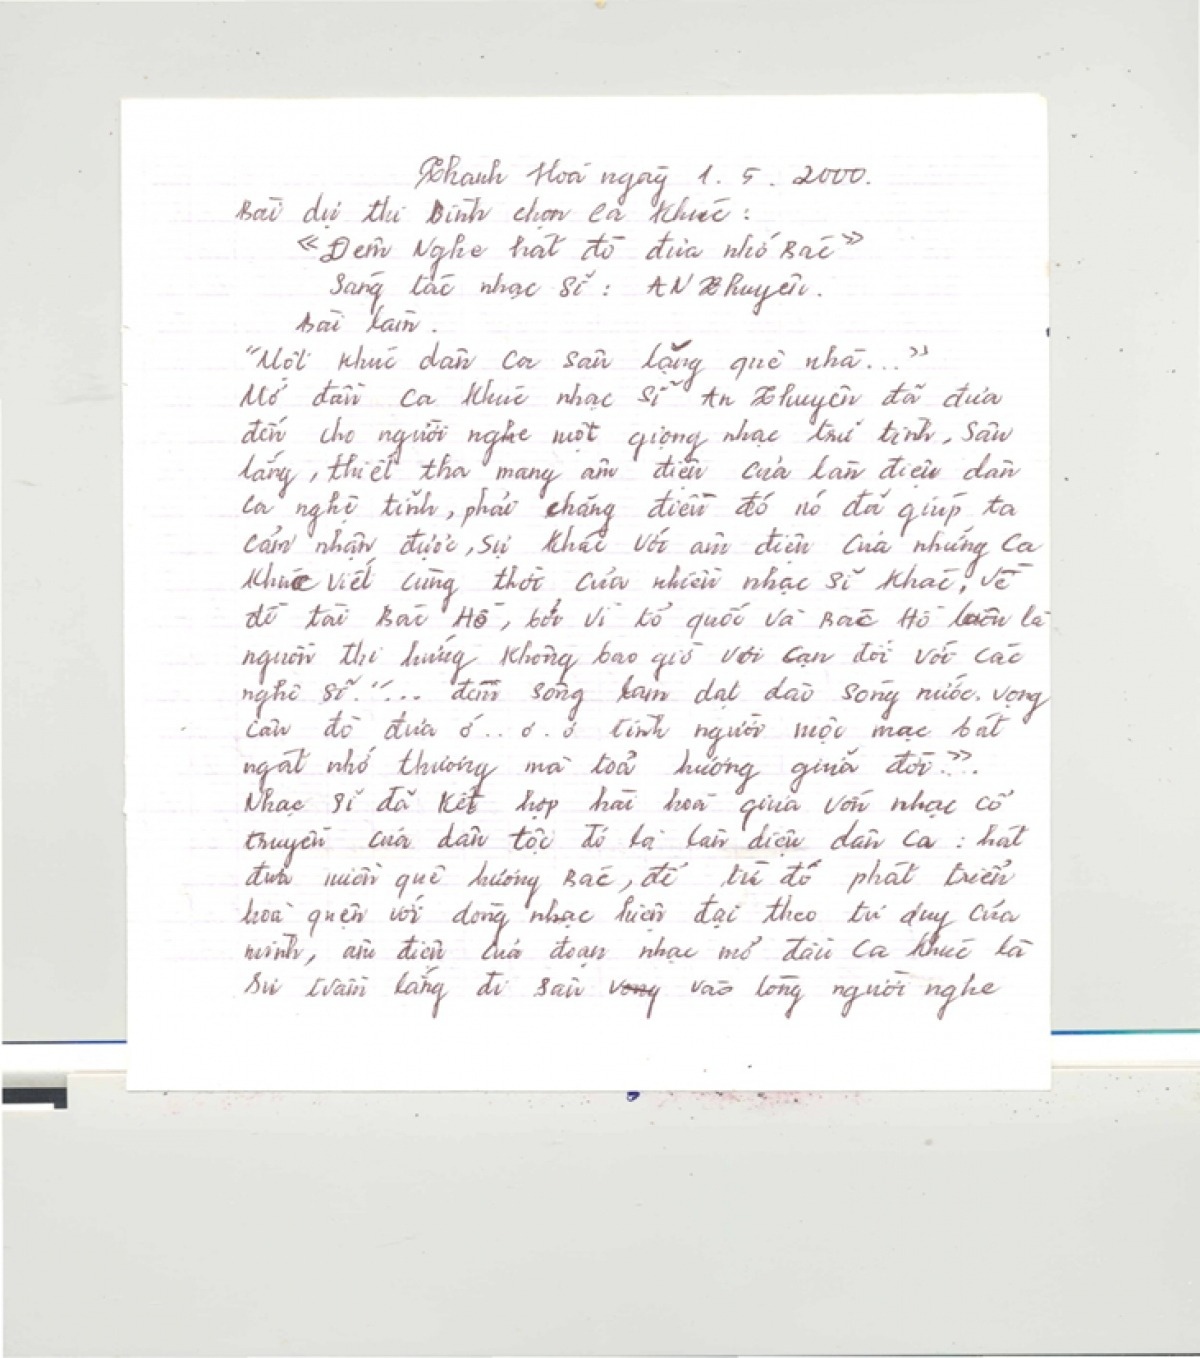 Thanh Hoá ngày 1. 5. 2000.
Bài dự thi Bình chọn ca khúc:
«Đêm Nghe hát đò đưa nhớ Bác»
Sáng tác nhạc sĩ: AN Thuyên.
Bài làm.
"Một khúc dân ca sâu lắng quê nhà..."
Mở đầu ca khúc nhạc sĩ An Thuyên đã đưa
đến cho người nghe một giọng nhạc trữ tình, sâu
lắng, thiết tha mang âm điệu của làn điệu dân
ca nghệ tĩnh, phải chăng điều đó nó đã giúp ta
cảm nhận được, sự khác với âm điệu của những ca
khúc viết cùng thời của nhiều nhạc sĩ khác, về
đề tài Bác Hồ, bởi vì tổ quốc và Bác Hồ luôn là
nguồn thi hứng không bao giờ vơi cạn đối với các
nghệ sĩ. "... đêm sông lam dạt dào sóng nước. vọng
câu đò đưa ớ.. ơ. ơ tình người mộc mạc bát
ngát nhớ thương mà toả hương giữa đời...".
Nhạc sĩ đã kết hợp hài hoà giữa vốn nhạc cổ
truyền của dân tộc đó là làn điệu dân ca: hát
đưa miền quê hương Bác, để từ đó phát triển
hoà quện với dòng nhạc hiện đại theo tư duy của
mình, âm điệu của đoạn nhạc mở đầu ca khúc là
sự trầm lắng đi sâu vào lòng người nghe